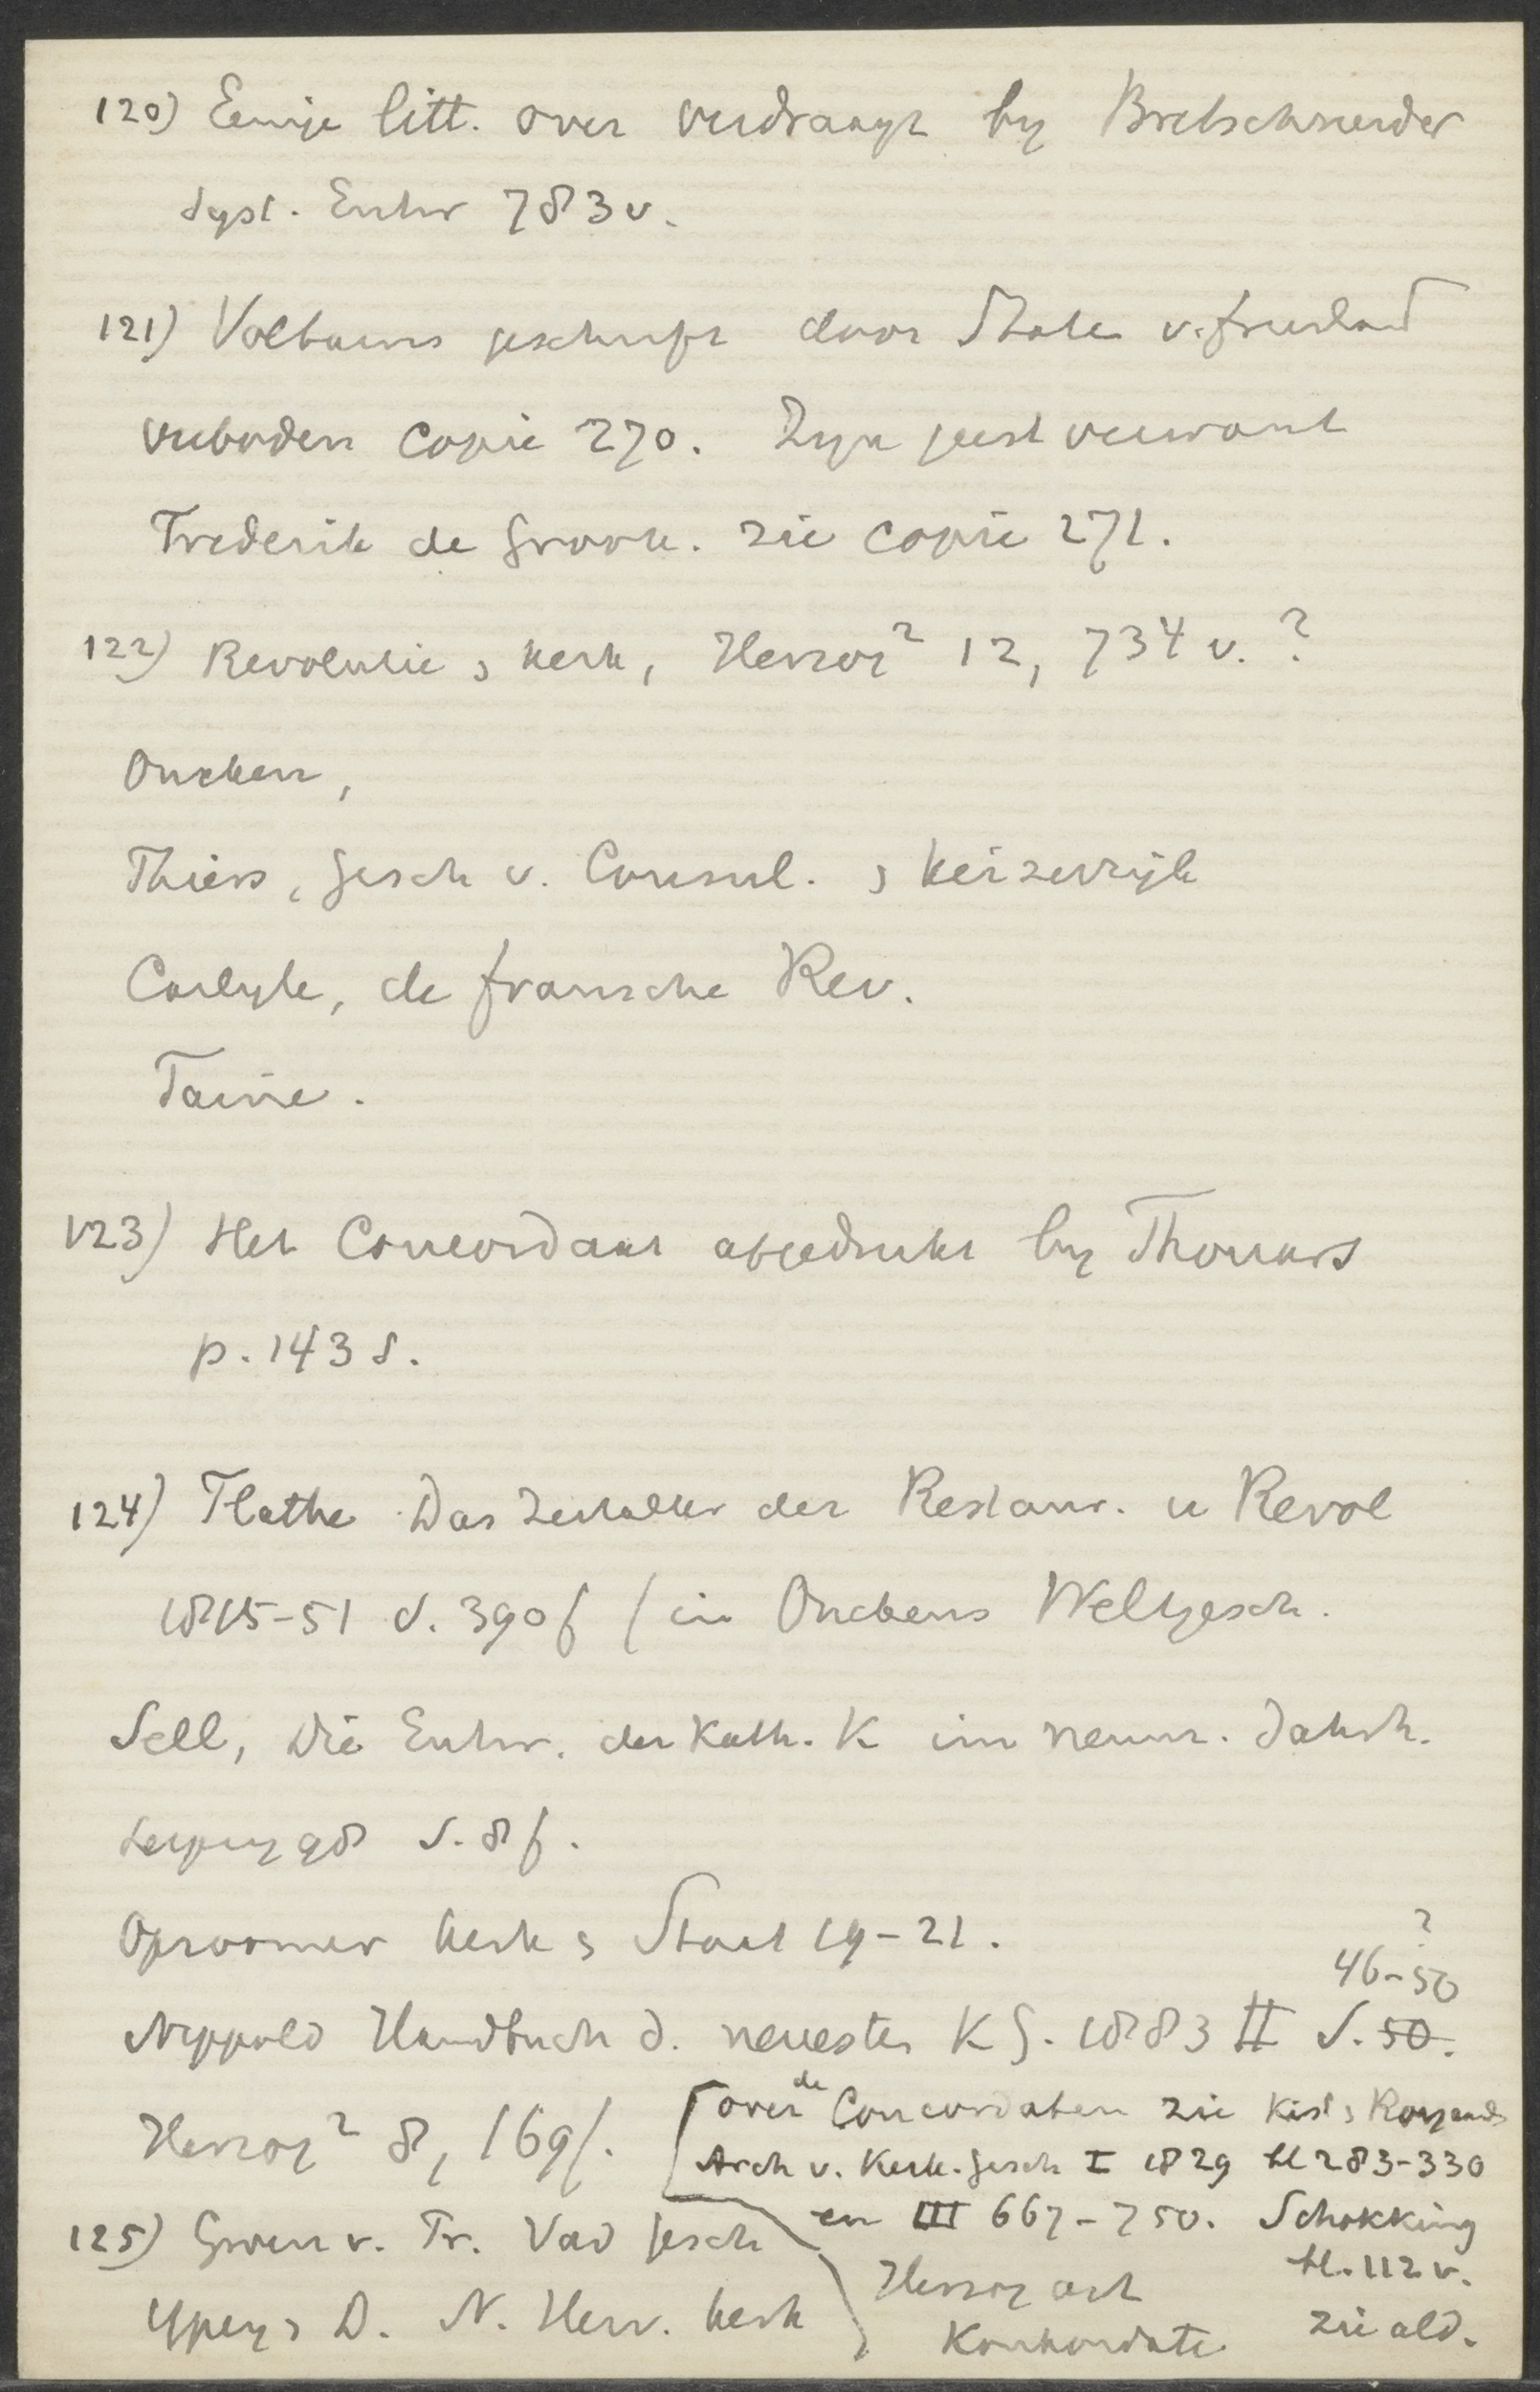 120) Eenige litt. over verdraagz by Bretschneider
Syst. Entw 783 v.
121) Voltaires geschrift door Staten v. friesland
verboden Copie 270. Zyn geestverwant
Frederik de Groote. zie Copie 271.
122) Revolutie & kerk, Herzog² 12, 734 v. ?
Oncken,
Thiers, Gesch v. Consul. & keizerrijk
Carlyle, de fransche Rev.
Taine.
123) Het Concordaat afgedrukt by Thomas
p. 143 s.
124) Flathe Das Zeitalter der Restaur. u Revol
1815-51 S. 390 f / in Onckens Weltgesch.
Sell, Die Entw. der Kath. K im neunz. Jahrh.
Leipzig 98 S. 8 f.
Opzoomer kerk & Staat 19-21.
?
46-50
Nippold Handbuch d. neuesten KG. 1883 II S. 50.
Herzog² 8, 169 f.
over de Concordaten zie Kist & Royaards
Arch v. Kerk. gesch I 1829 bl 283-330
en III 667-750. Schokking
bl. 112 v.
zie ald.
Herzog art
Konkordate
125) Groen v. Pr. Vad gesch
Ypey & D. N. Herv. kerk